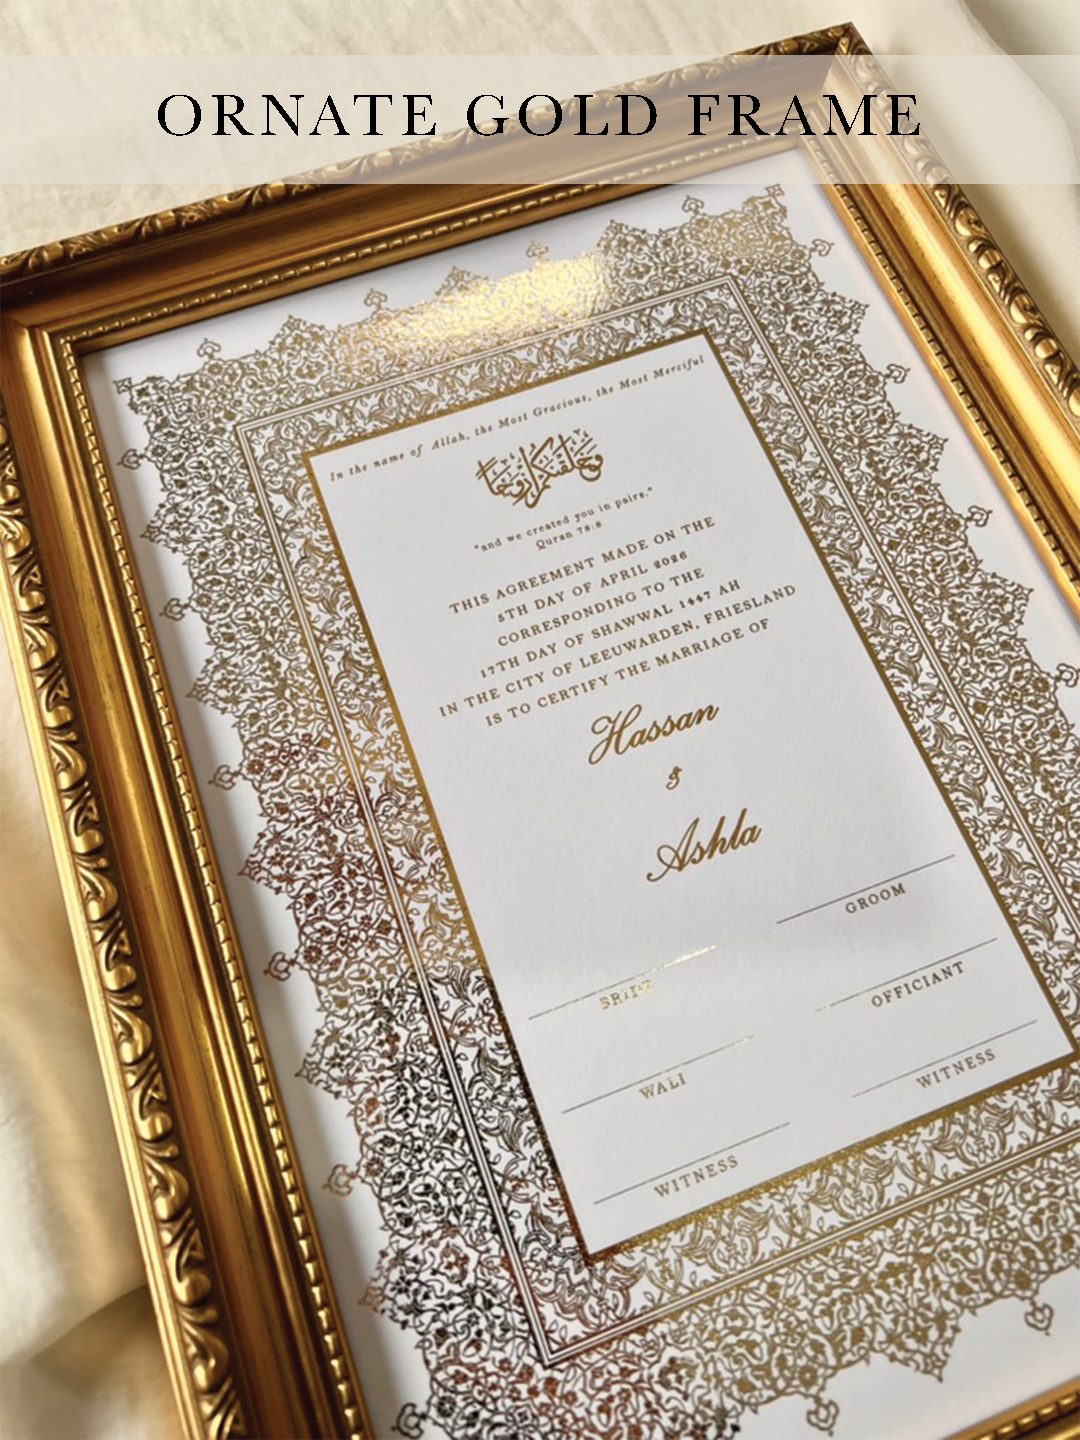 ORNATE GOLD FRAME
In the name of Allah, the Most Gracious, the Most Merciful
وخلقنكم ازوجا
"and we created you in pairs."
Quran 78:8
THIS AGREEMENT MADE ON THE
5TH DAY OF APRIL 2026
CORRESPONDING TO THE
17TH DAY OF SHAWWAL 1447 AH
IN THE CITY OF LEEUWARDEN, FRIESLAND
IS TO CERTIFY THE MARRIAGE OF
Hassan
&
Ashla
GROOM
BRIDE
OFFICIANT
WALI
WITNESS
WITNESS